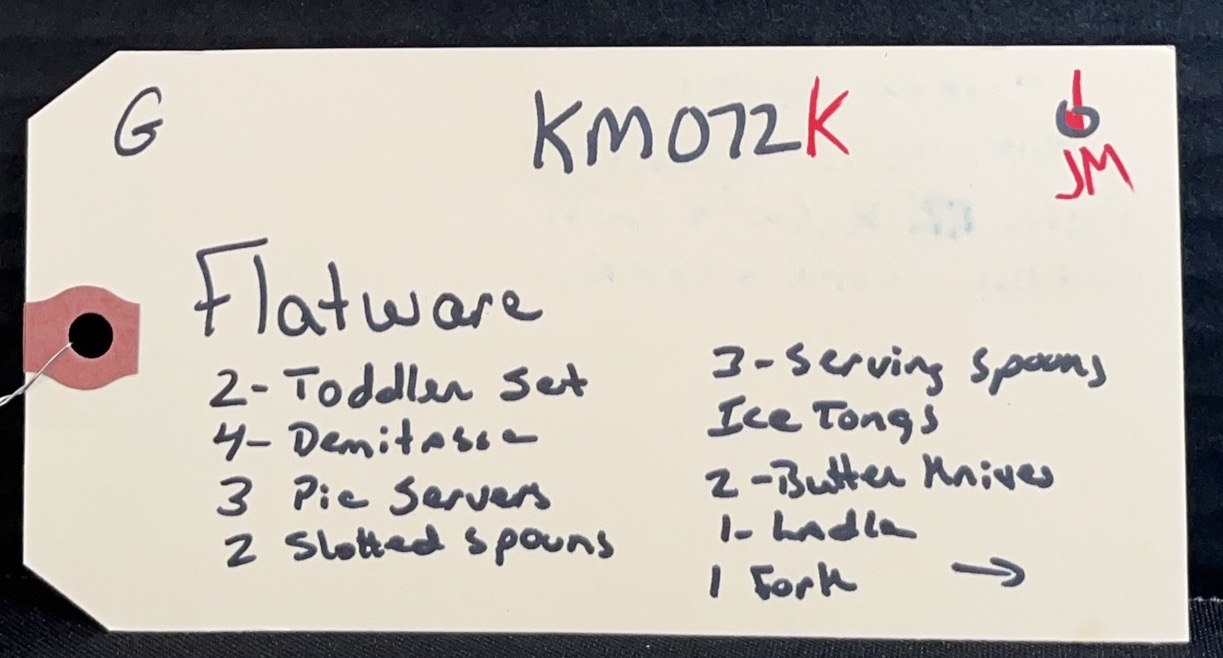 G
KM072K
JM
Flatware
2- Toddler Set
4- Demitasse
3 Pie Servers
2 Slotted Spoons
3- Serving Spoons
Ice Tongs
2- Butter Knives
1- Ladle
1 Fork →